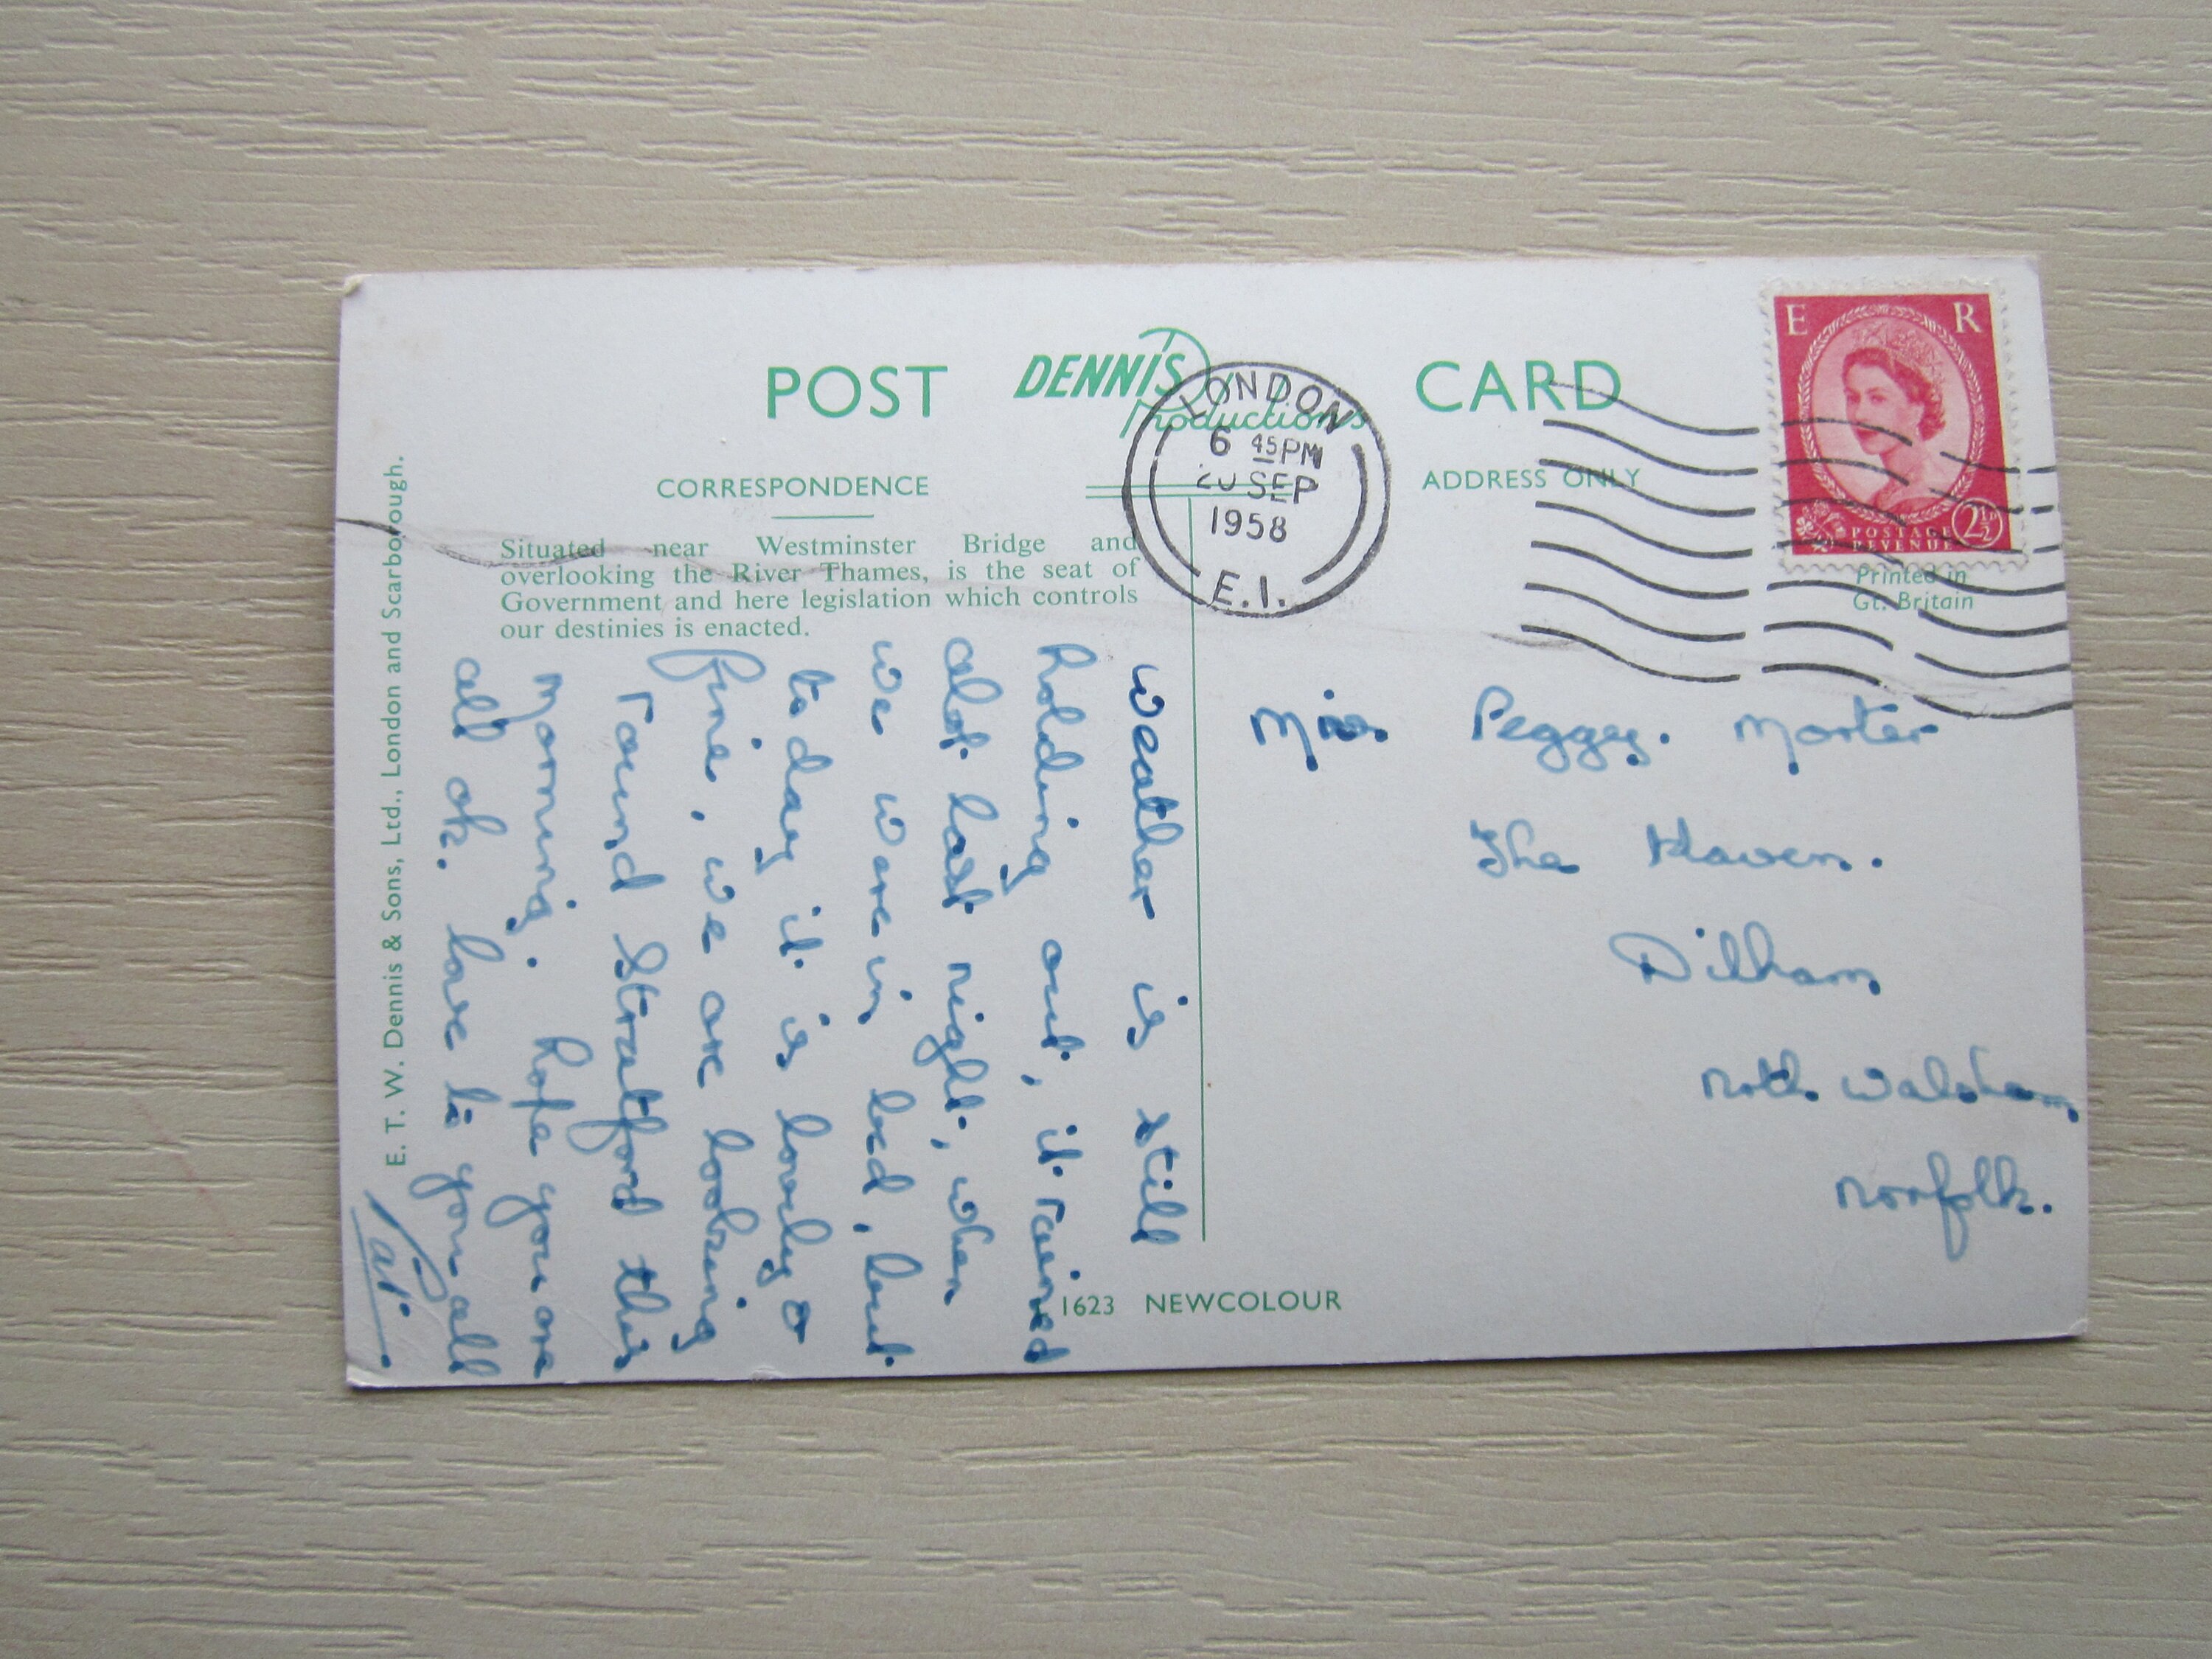 POST DENNIS Productions CARD
CORRESPONDENCE
ADDRESS ONLY
Situated near Westminster Bridge and
overlooking the River Thames, is the seat of
Government and here legislation which controls
our destinies is enacted.
E. T. W. Dennis & Sons, Ltd., London and Scarborough.
LONDON
6 45PM
20 SEP
1958
E.I.
E R
POSTAGE 2½
REVENUE
Printed in
Gt. Britain
weather is still
holding out, it rained
alot last night, when
we were in bed, but
to day it is lovely &
fine, we are looking
round Stratford this
morning. hope you are
all ok. love to you all
Pat.
Miss Peggy. Morter
The Haven.
Dilham
North Walsham
Norfolk.
1623 NEWCOLOUR